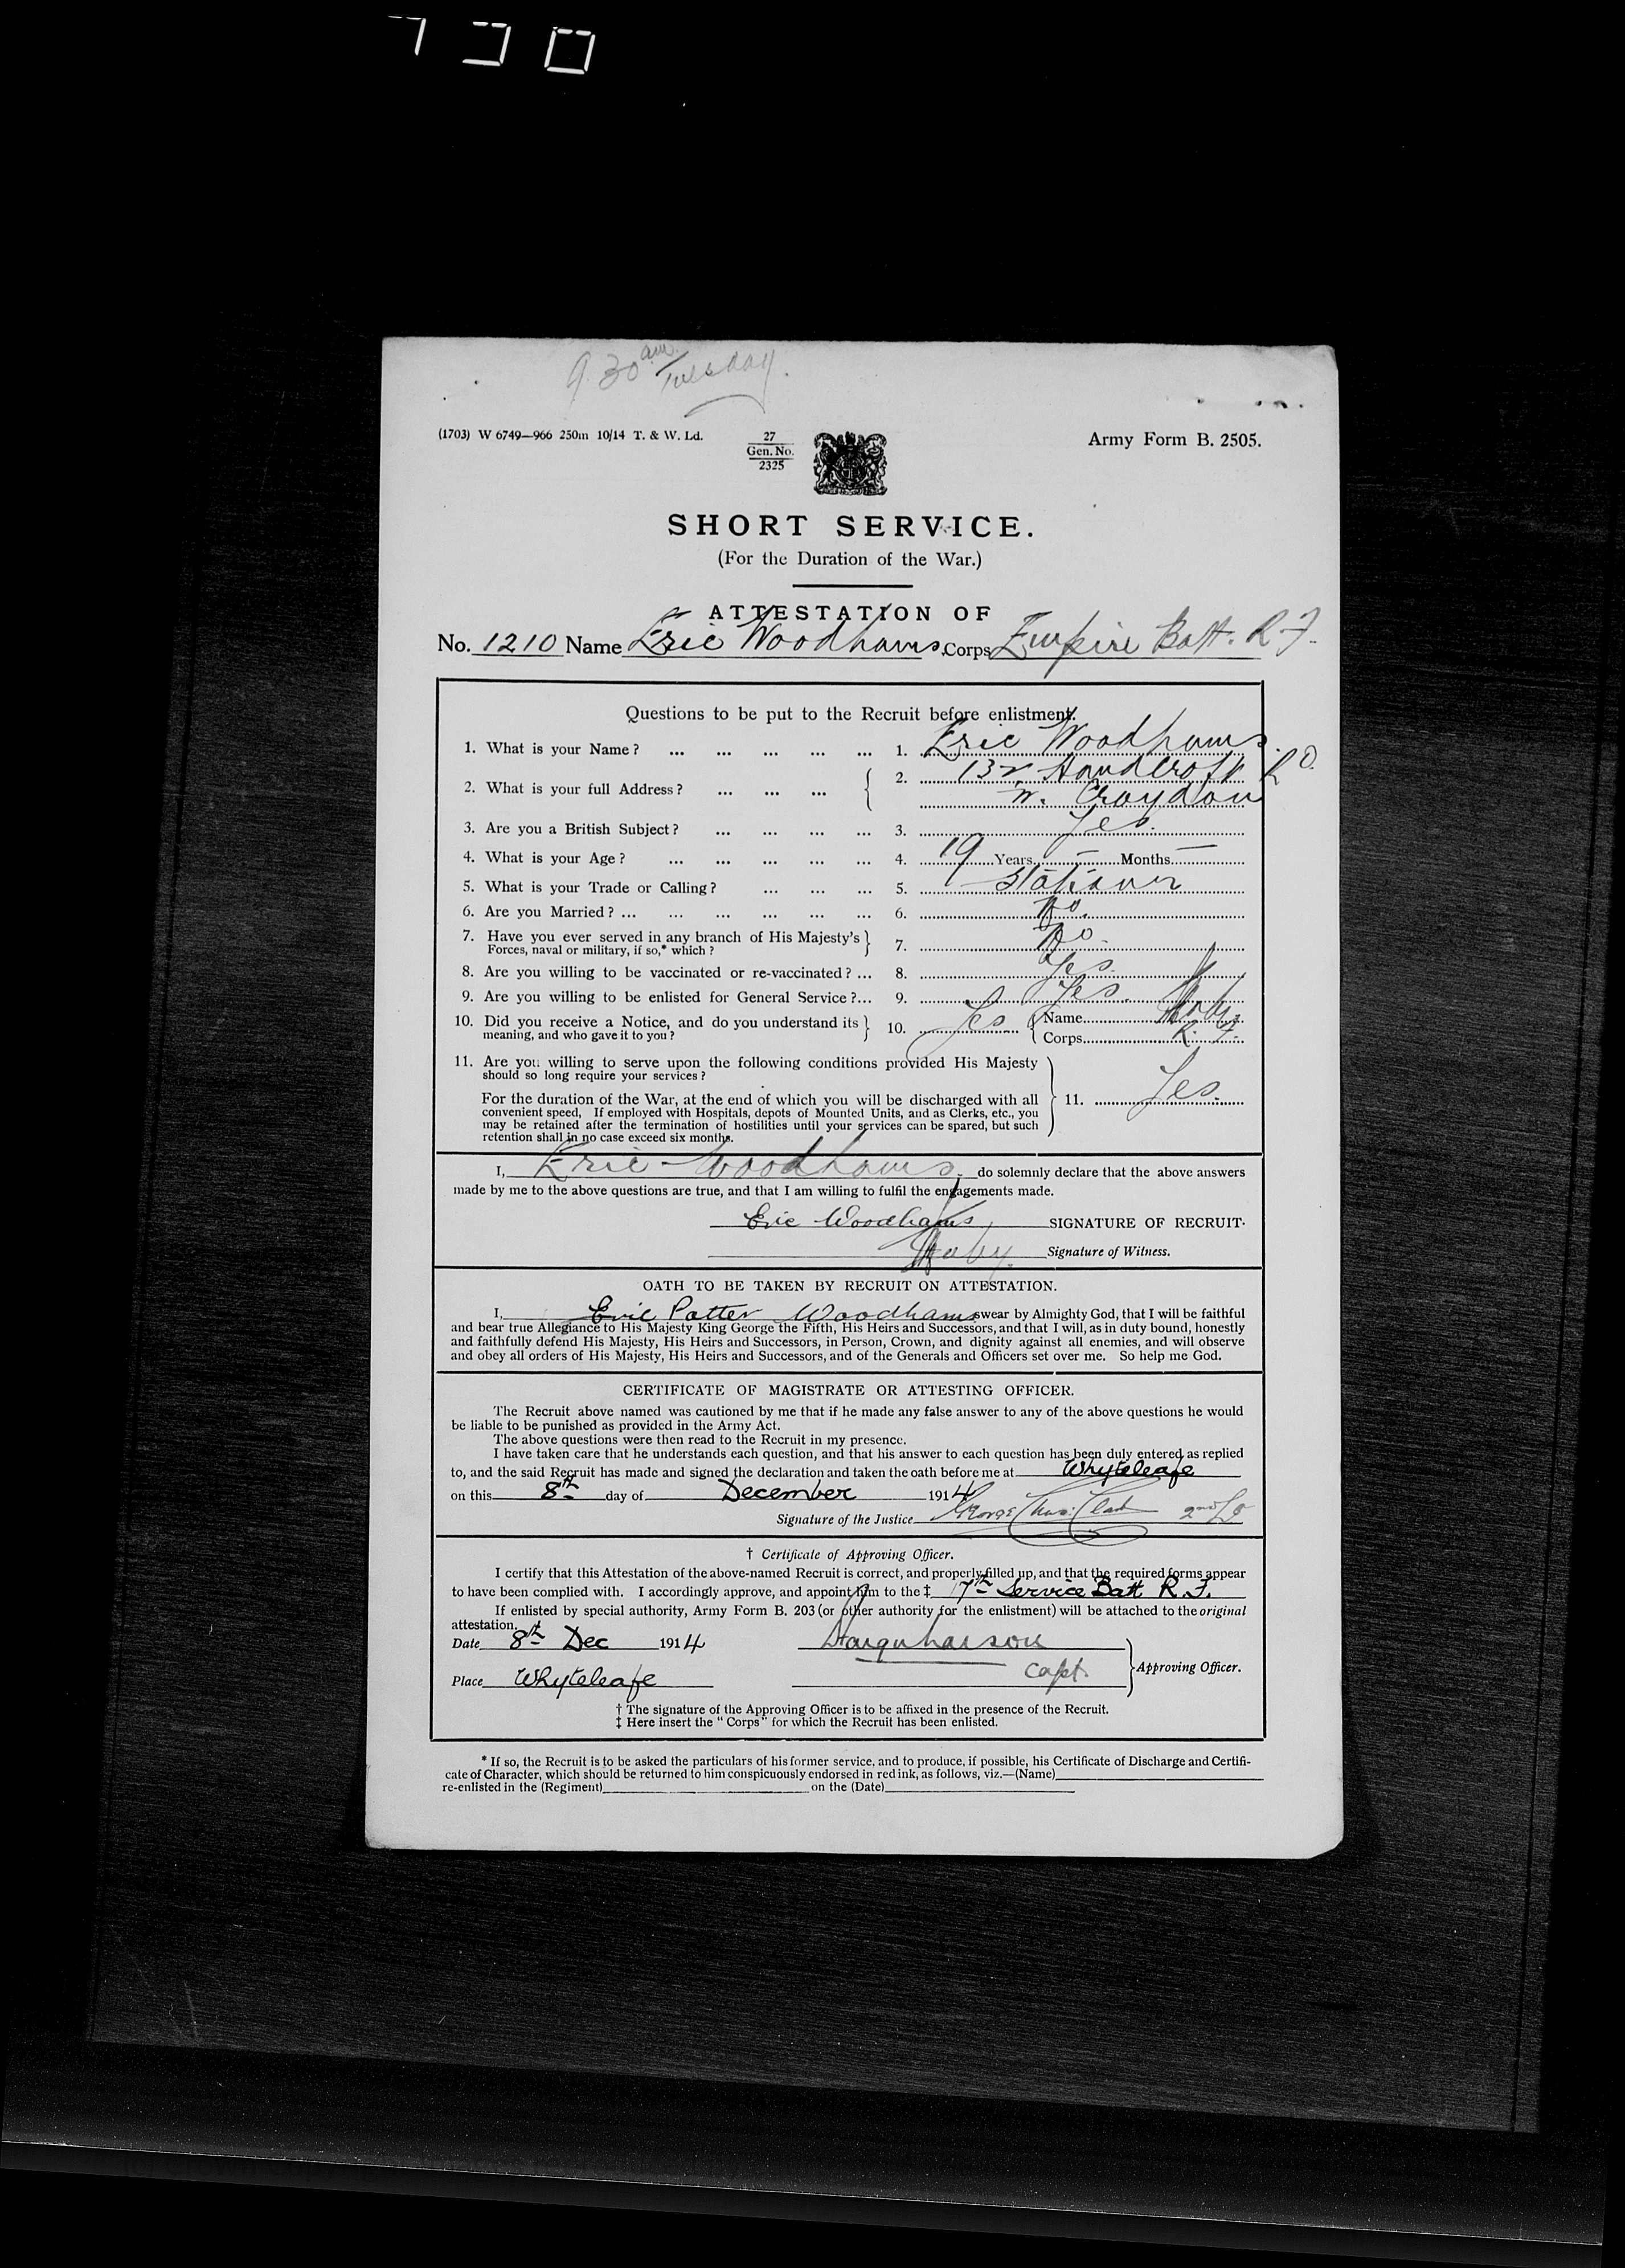 9.30 am Tuesday.
(1703) W 6749—966 250m 10/14 T. & W. Ld.
27
Gen. No.
2325
Army Form B. 2505.
SHORT SERVICE.
(For the Duration of the War.)
ATTESTATION OF
No. 1210 Name Eric Woodhams. Corps Empire Batt. R. F.
Questions to be put to the Recruit before enlistment.
1. What is your Name? ... ... ... ... ... 1. Eric Woodhams.
2. What is your full Address? ... ... ... 2. 132 Handcroft Rd.
W. Croydon
3. Are you a British Subject? ... ... ... ... 3. Yes.
4. What is your Age? ... ... ... ... ... 4. 19 Years — Months —
5. What is your Trade or Calling? ... ... ... 5. Stationer
6. Are you Married? ... ... ... ... ... ... 6. No.
7. Have you ever served in any branch of His Majesty's
Forces, naval or military, if so,* which? 7. No.
8. Are you willing to be vaccinated or re-vaccinated? ... 8. Yes.
9. Are you willing to be enlisted for General Service?... 9. Yes.
10. Did you receive a Notice, and do you understand its
meaning, and who gave it to you? 10. Yes Name
Corps R. F.
11. Are you willing to serve upon the following conditions provided His Majesty
should so long require your services?
For the duration of the War, at the end of which you will be discharged with all 11. Yes.
convenient speed, If employed with Hospitals, depots of Mounted Units, and as Clerks, etc., you
may be retained after the termination of hostilities until your services can be spared, but such
retention shall in no case exceed six months.
I, Eric Woodhams. do solemnly declare that the above answers
made by me to the above questions are true, and that I am willing to fulfil the engagements made.
Eric Woodhams SIGNATURE OF RECRUIT.
Signature of Witness.
OATH TO BE TAKEN BY RECRUIT ON ATTESTATION.
I, Eric Potter Woodhams swear by Almighty God, that I will be faithful
and bear true Allegiance to His Majesty King George the Fifth, His Heirs and Successors, and that I will, as in duty bound, honestly
and faithfully defend His Majesty, His Heirs and Successors, in Person, Crown, and dignity against all enemies, and will observe
and obey all orders of His Majesty, His Heirs and Successors, and of the Generals and Officers set over me. So help me God.
CERTIFICATE OF MAGISTRATE OR ATTESTING OFFICER.
The Recruit above named was cautioned by me that if he made any false answer to any of the above questions he would
be liable to be punished as provided in the Army Act.
The above questions were then read to the Recruit in my presence.
I have taken care that he understands each question, and that his answer to each question has been duly entered as replied
to, and the said Recruit has made and signed the declaration and taken the oath before me at Whyteleafe
on this 8th day of December 1914
Signature of the Justice George Chas. Clark 2nd Lt
† Certificate of Approving Officer.
I certify that this Attestation of the above-named Recruit is correct, and properly filled up, and that the required forms appear
to have been complied with. I accordingly approve, and appoint him to the ‡ 17th Service Batt R. F.
If enlisted by special authority, Army Form B. 203 (or other authority for the enlistment) will be attached to the original
attestation.
Date 8th Dec 1914 Farquharson
Capt. Approving Officer.
Place Whyteleafe
† The signature of the Approving Officer is to be affixed in the presence of the Recruit.
‡ Here insert the "Corps" for which the Recruit has been enlisted.
* If so, the Recruit is to be asked the particulars of his former service, and to produce, if possible, his Certificate of Discharge and Certifi-
cate of Character, which should be returned to him conspicuously endorsed in red ink, as follows, viz.—(Name)
re-enlisted in the (Regiment) on the (Date)